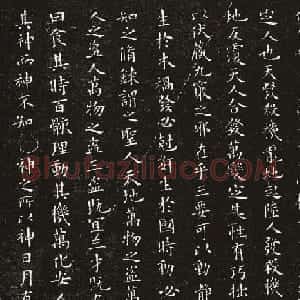 定人也天發殺機龍蛇起陸人發殺機
地反覆天人合發萬變定基性有巧拙
以伏藏九竅之邪在乎三要可以動
生於木禍發必剋姦生於國時動必
知之脩鍊謂之聖人天地萬物之盜萬
人之盜人萬物之盜三盜既宜三才既
曰食其時百骸理動其機萬化安人
其神而神不知神之所以神日月有
Shufaziliao.COM